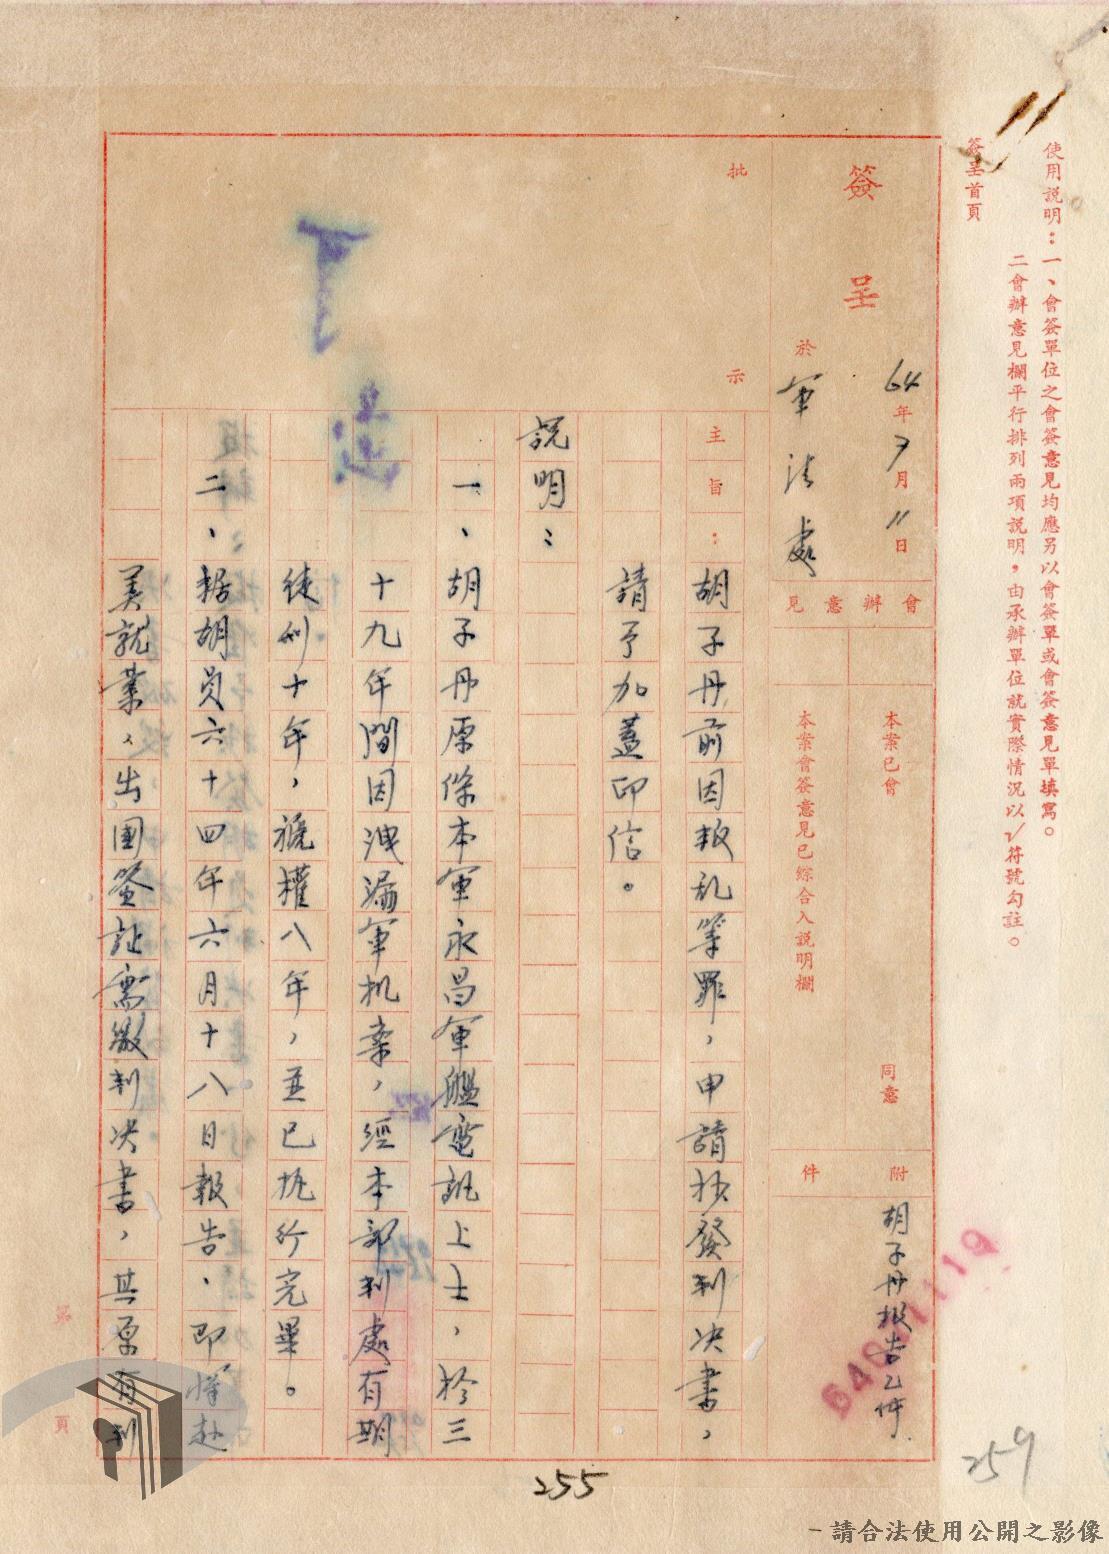 使用說明：一、會簽單位之會簽意見均應另以會簽單或會簽意見單填寫。
二會辦意見欄平行排列兩項說明，由承辦單位就實際情況以√符號勾註。
簽呈首頁
簽呈
64年7月11日
於軍法處
會辦意見
本案已會 同意
本案會簽意見已綜合入說明欄
附件
胡子丹報告乙件
批示
主旨：胡子丹前因叛乱等罪，申請抄發判决書，
請予加蓋印信。
說明：
一、胡子丹原係本軍永昌軍艦電訊上士，於三
十九年間因洩漏軍机案，經本部判處有期
徒刑十年，褫權八年，並已执行完畢。
二、据胡員六十四年六月十八日報告、即將赴
美就業、出國簽証需繳判决書，其原有判
第 頁
255
259
－請合法使用公開之影像